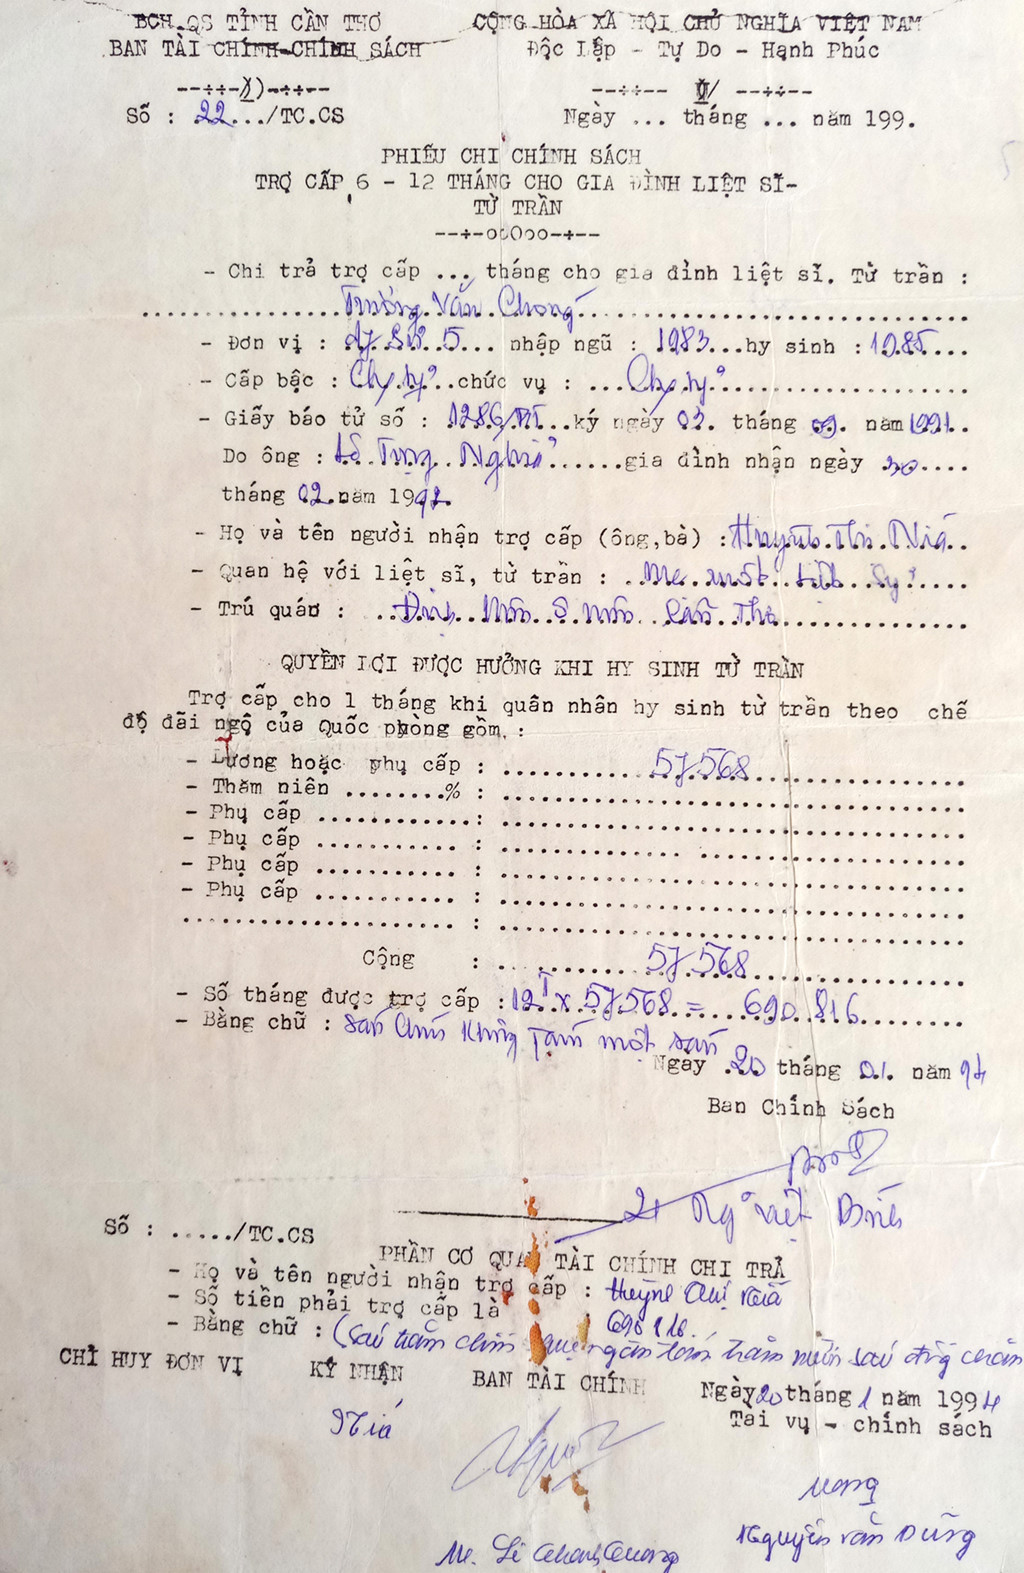 BCH.QS TỈNH CẦN THƠ
BAN TÀI CHÍNH-CHÍNH SÁCH
CỘNG HÒA XÃ HỘI CHỦ NGHĨA VIỆT NAM
Độc Lập - Tự Do - Hạnh Phúc
Số : 22.../TC.CS
Ngày ... tháng ... năm 199.
PHIẾU CHI CHÍNH SÁCH
TRỢ CẤP 6 - 12 THÁNG CHO GIA ĐÌNH LIỆT SĨ-
TỪ TRẦN
--+-ooOoo-+--
- Chi trả trợ cấp ... tháng cho gia đình liệt sĩ. Từ trần :
Trương Văn Chong
- Đơn vị : 5... nhập ngũ : 1983...hy sinh : 1985...
- Cấp bậc : ...chức vụ : ...
- Giấy báo tử số : 1286/ ...ký ngày 03. tháng 09. năm 1991..
Do ông : Lê Trọng Nghĩa ......gia đình nhận ngày 30....
tháng 02.năm 1992
- Họ và tên người nhận trợ cấp (ông,bà) : Huỳnh Thị Niá..
- Quan hệ với liệt sĩ, từ trần : .. Mẹ ruột liệt sỹ ....
- Trú quán : .. Định Môn Ô Môn Cần Thơ
QUYỀN LỢI ĐƯỢC HƯỞNG KHI HY SINH TỪ TRẦN
Trợ cấp cho 1 tháng khi quân nhân hy sinh từ trần theo chế
độ đãi ngộ của Quốc phòng gồm. :
- Lương hoặc phụ cấp : 57.568
- Thăm niên ........% :
- Phụ cấp ............:
- Phụ cấp ........... :
- Phụ cấp ........... :
- Phụ cấp ........... :
.................... :
Cộng : 57.568
- Số tháng được trợ cấp : 12T x 57.568 = 690.816
- Bằng chữ : sáu chín không tám một sáu
Ngày 20 tháng 01. năm 94
Ban Chính Sách
2/ Ngô Việt
Số : ...../TC.CS
PHẦN CƠ QUAN TÀI CHÍNH CHI TRẢ
- Họ và tên người nhận trợ cấp : Huỳnh Thị Niá
- Số tiền phải trợ cấp là : 690 816.
- Bằng chữ : (Sáu trăm chín ngàn tám trăm mười sáu đồng chẵn
CHỈ HUY ĐƠN VỊ KÝ NHẬN BAN TÀI CHÍNH
Ngày 20 tháng 1 năm 1994
Tài vụ - chính sách
Niá
Nguyễn Văn Dũng